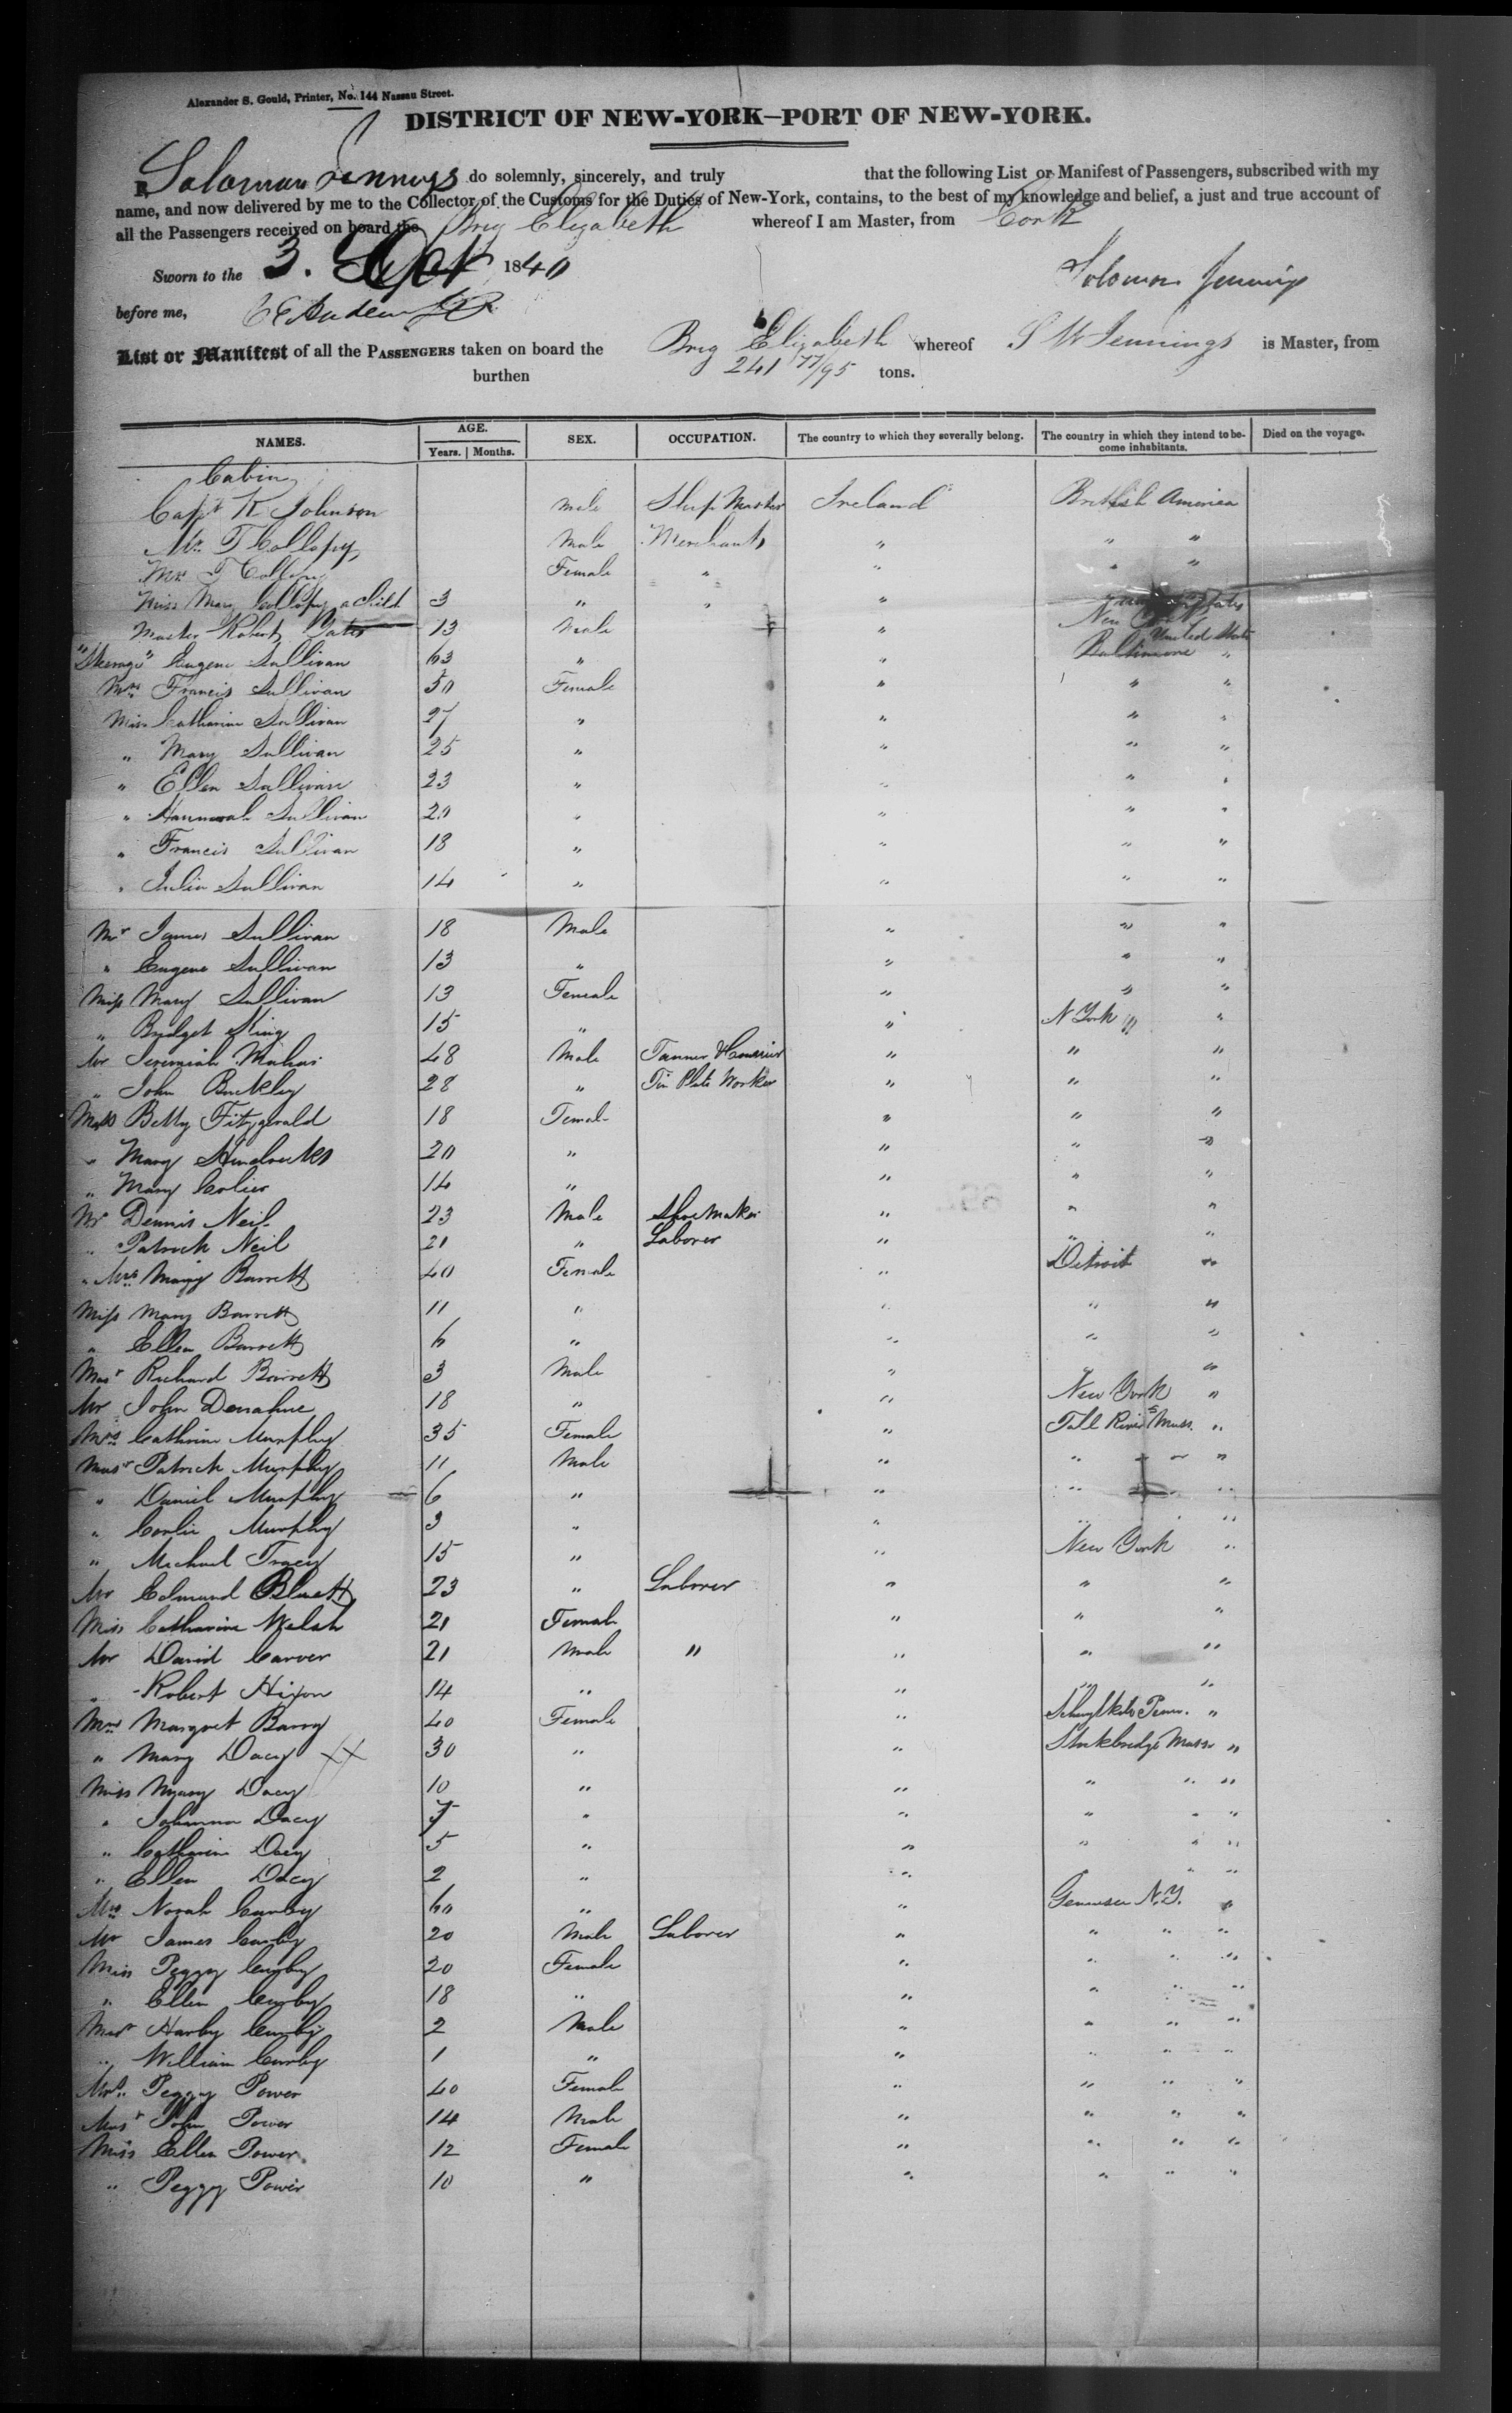 Alexander S. Gould, Printer, No. 144 Nassau Street.
DISTRICT OF NEW-YORK—PORT OF NEW-YORK.
I, Soloman Jennings do solemnly, sincerely, and truly that the following List or Manifest of Passengers, subscribed with my
name, and now delivered by me to the Collector of the Customs for the Duties of New-York, contains, to the best of my knowledge and belief, a just and true account of
all the Passengers received on board the Brig Elizabeth whereof I am Master, from Cork
Sworn to the 3. 1840
Solomon Jennings
before me,
List or Manifest of all the PASSENGERS taken on board the Brig Elizabeth whereof S W Jennings is Master, from
burthen 241 77/95 tons.
NAMES. AGE. Years. Months. SEX. OCCUPATION. The country to which they severally belong. The country in which they intend to become inhabitants. Died on the voyage.
Cabin
Capt R Johnson Male Ship Master Ireland British America
Mr. T Collopy Male Merchants " " "
Mrs T Collopy Female " " " "
Miss Mary Collopy a Child 3 " " "
Master Robert 13 Male " New
"Steerage" Eugene Sullivan 63 " " Baltimore United States
Mrs Francis Sullivan 50 Female " " "
Miss Catharine Sullivan 27 " " " "
" Mary Sullivan 25 " " " "
" Ellen Sullivan 23 " " " "
" Hannorah Sullivan 20 " " " "
" Francis Sullivan 18 " " " "
" Julia Sullivan 14 " " " "
Mr James Sullivan 18 Male " " "
" Eugene Sullivan 13 " " " "
Miss Mary Sullivan 13 Female " " "
" Bridget King 15 " " N York "
Mr Jeremiah 48 Male Tanner & Currier " " "
" John Buckley 28 " Tin Plate Worker " " "
Miss Betty Fitzgerald 18 Female " " "
" Mary 20 " " " "
" Mary 14 " " " "
Mr Dennis Neil 23 Male Shoe Maker " " "
" Patrick Neil 21 " Laborer " " "
" Mrs Mary Barrett 40 Female " Detroit "
Miss Mary Barrett 11 " " " "
" Ellen Barrett 6 " " " "
Mast Richard Barrett 3 Male " " "
Mr John Donahue 18 " " New York "
Mrs Cathrine Murphy 35 Female " Fall River Mass. "
Mast Patrick Murphy 11 Male " " " "
" Daniel Murphy 6 " " " " "
" Murphy 3 " " " " "
" Michael Tracy 15 " " New York "
Mr Edmund Bluett 23 " Laborer " " "
Miss Catharine Welsh 21 Female " " "
Mr David Carver 21 Male " " " "
" Robert Hixon 14 " " " "
Mrs Margret Barry 40 Female " Penn. "
" Mary Dacy 30 " " Stockbridge Mass "
Miss Mary Dacy 10 " " " " "
" Johanna Dacy 7 " " " " "
" Catharine Dacy 5 " " " " "
" Ellen Dacy 2 " " " " "
Mrs Norah Curby 60 " " Genesee N.Y. "
Mr James Curby 20 Male Laborer " " " "
Miss Peggy Curby 20 Female " " " "
" Ellen Curby 18 " " " " "
Mast Curby 2 Male " " " "
" William Curby 1 " " " " "
Mrs. Peggy Power 40 Female " " " "
Mast John Power 14 Male " " " "
Miss Ellen Power 12 Female " " " "
" Peggy Power 10 " " " " "